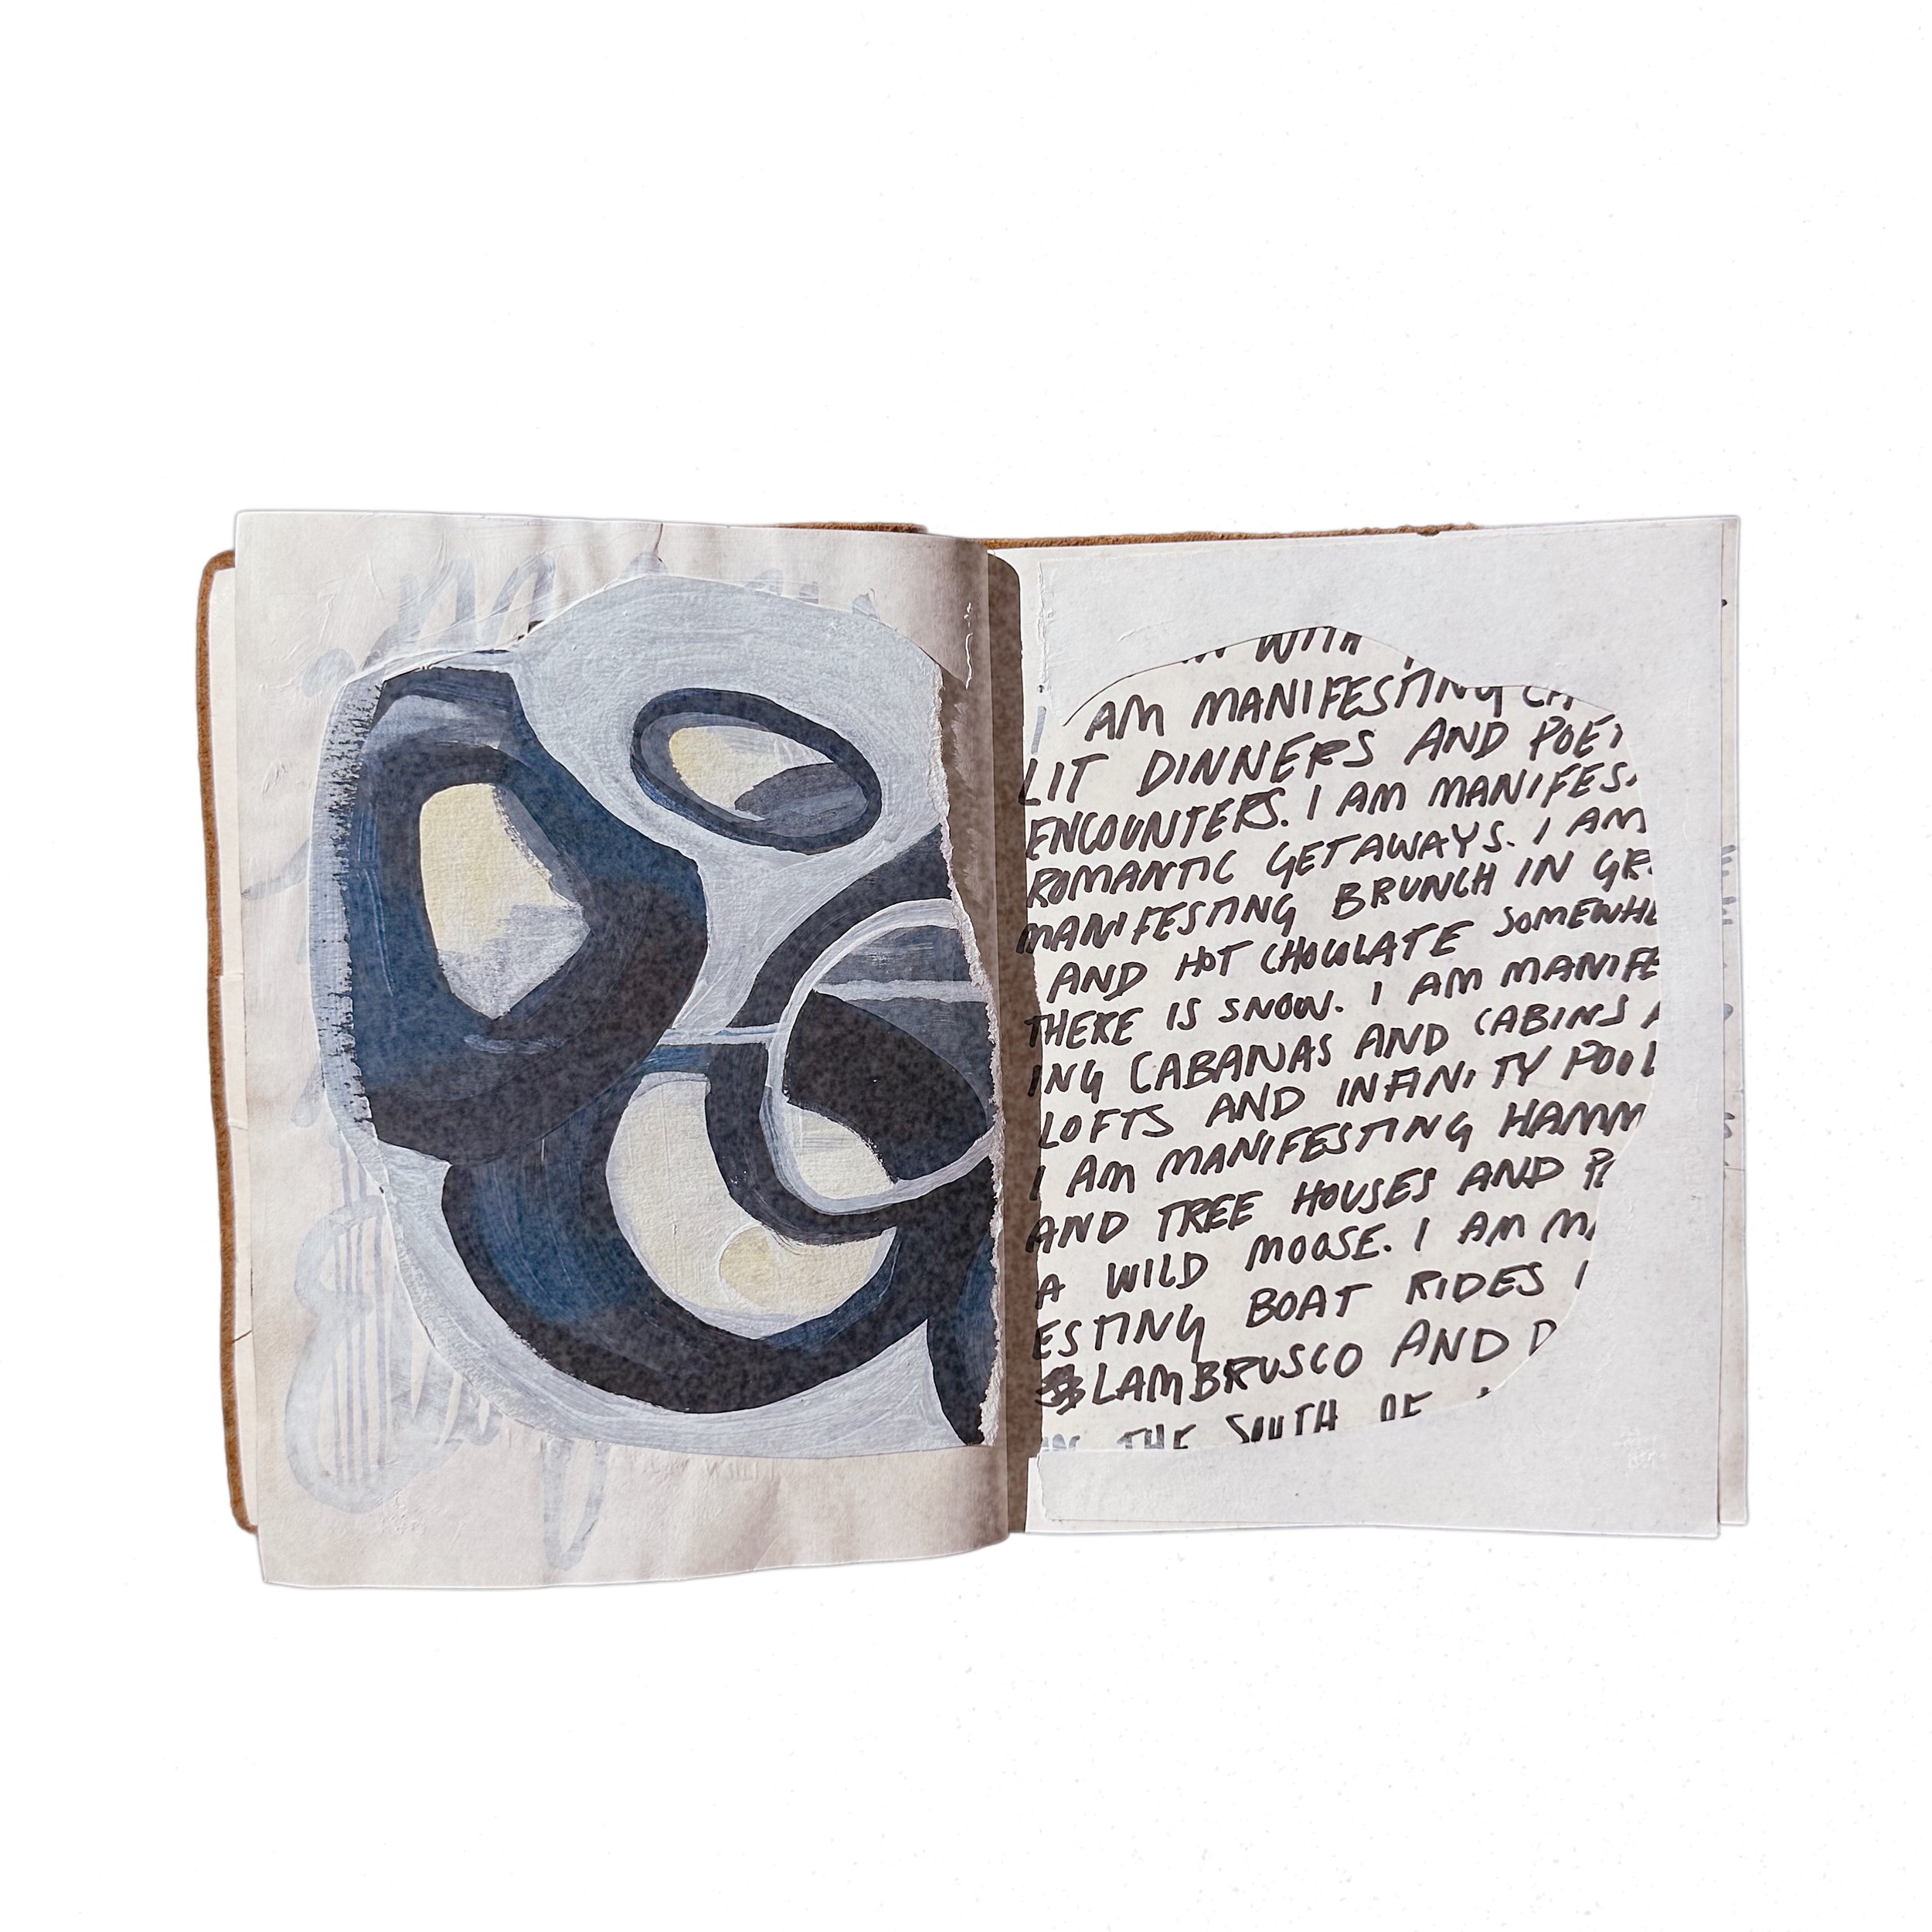 WITH
I AM MANIFESTING
LIT DINNERS AND
ENCOUNTERS. I AM
ROMANTIC GETAWAYS. I AM
MANIFESTING BRUNCH IN
AND HOT CHOCOLATE
THERE IS SNOW. I AM
ING CABANAS AND CABINS
LOFTS AND INFINITY
I AM MANIFESTING
AND TREE HOUSES AND
A WILD MOOSE. I AM
ESTING BOAT RIDES
LAMBRUSCO AND
THE SOUTH OF